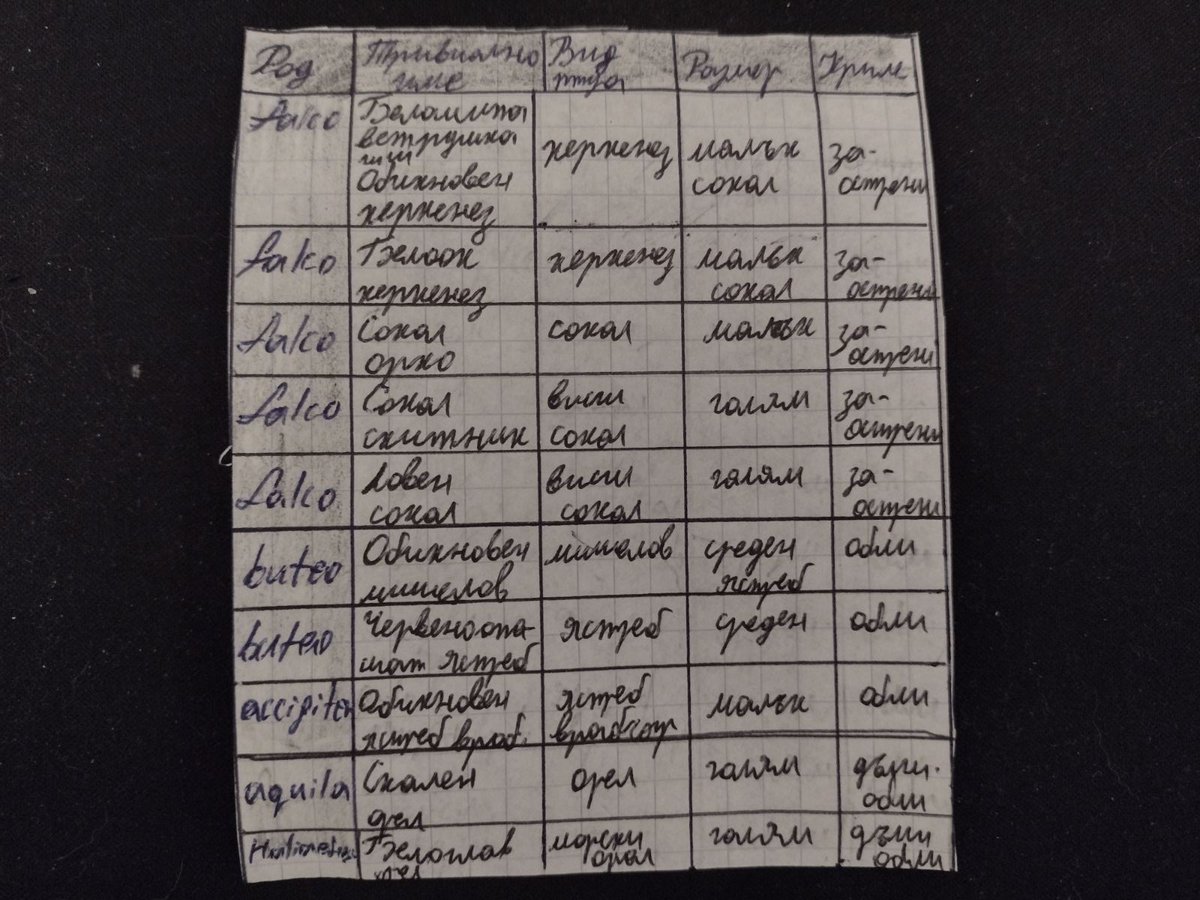 Род Тривиално име Вид птица Размер Криле
falco Белошипа ветрушка или Обикновен керкенез керкенез малък сокол за-острени
falco Белоок керкенез керкенез малък сокол за-острени
falco Сокол орко сокол малък за-острени
falco Сокол скитник висш сокол голям за-острени
falco Ловен сокол висш сокол голям за-острени
buteo Обикновен мишелов мишелов среден ястреб обли
buteo Червеноопа-шат ястреб ястреб среден обли
accipiter Обикновен ястреб враб. ястреб врабчар малък обли
aquila Скален орел орел голям дълги. обли
Белоглав орел морски орел голям дълги обли